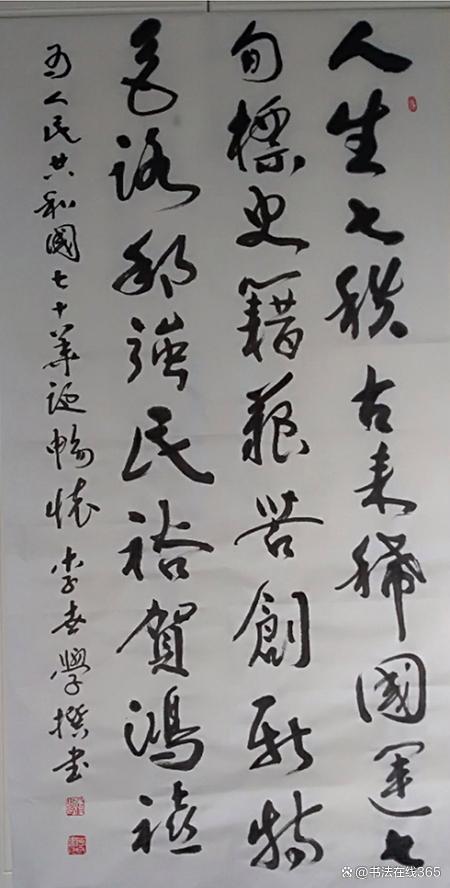 人生七秩古来稀國運七
旬標史籍艱苦創新特
色路邦強民裕賀鴻禧
为人民共和國七十華诞暢懷 李世學撰書
@书法在线365